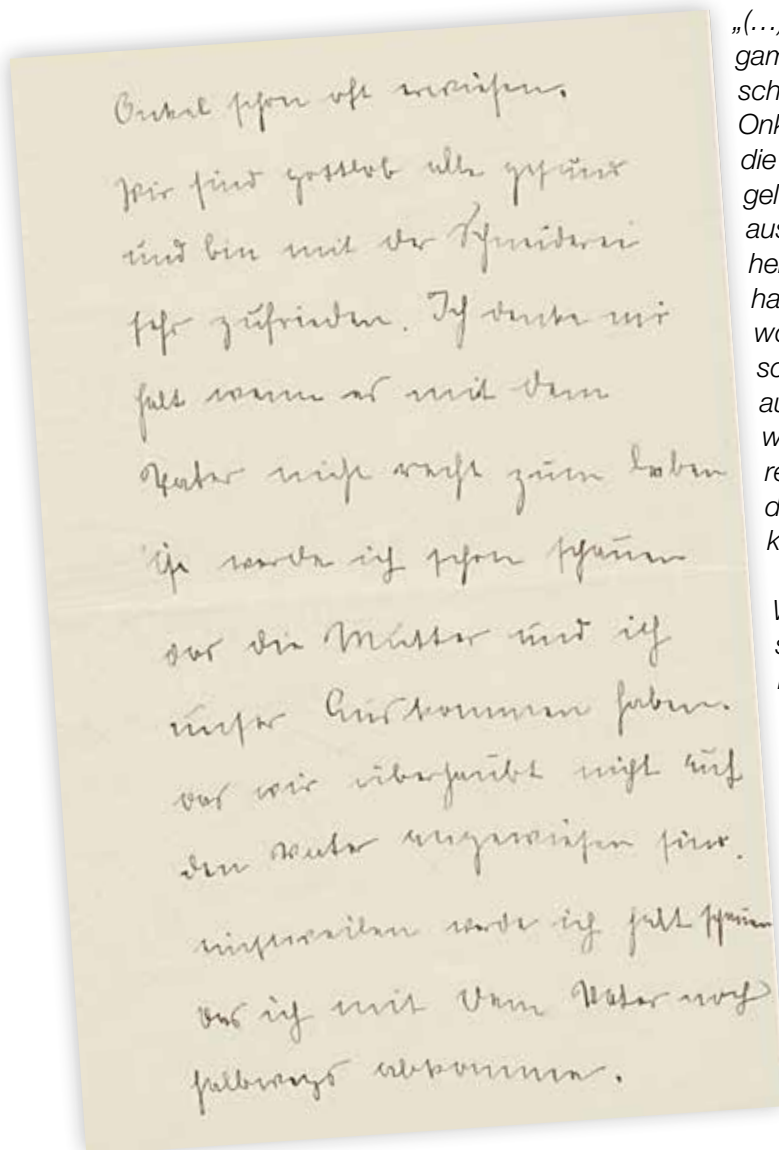 Onkel schon oft erwiesen.
Wir sind gottlob alle gesund
und bin mit der Schneiderei
sehr zufrieden. Ich denke mir
halt wenn es mit dem
Vater nicht recht zum leben
ist werde ich schon schauen
das die Mutter und ich
unser Auskommen haben.
das wir überhaubt nicht auf
den Vater angewiesen sind.
werde ich halt schauen
das ich mit dem Vater noch
halbwegs abkomme.
„(…)